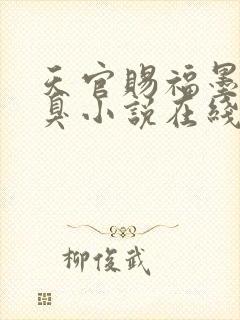 天官赐福墨
臭小说在线
柳俊武